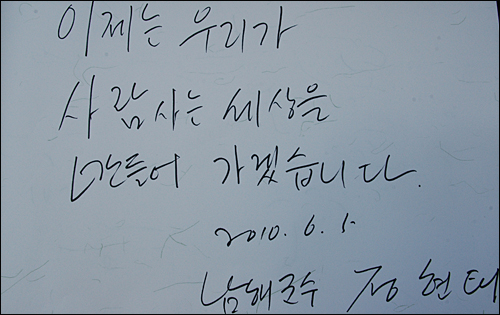 이제는 우리가
사람사는 세상을
만들어 가겠습니다.
2010. 6. 5
남해군수 정현태